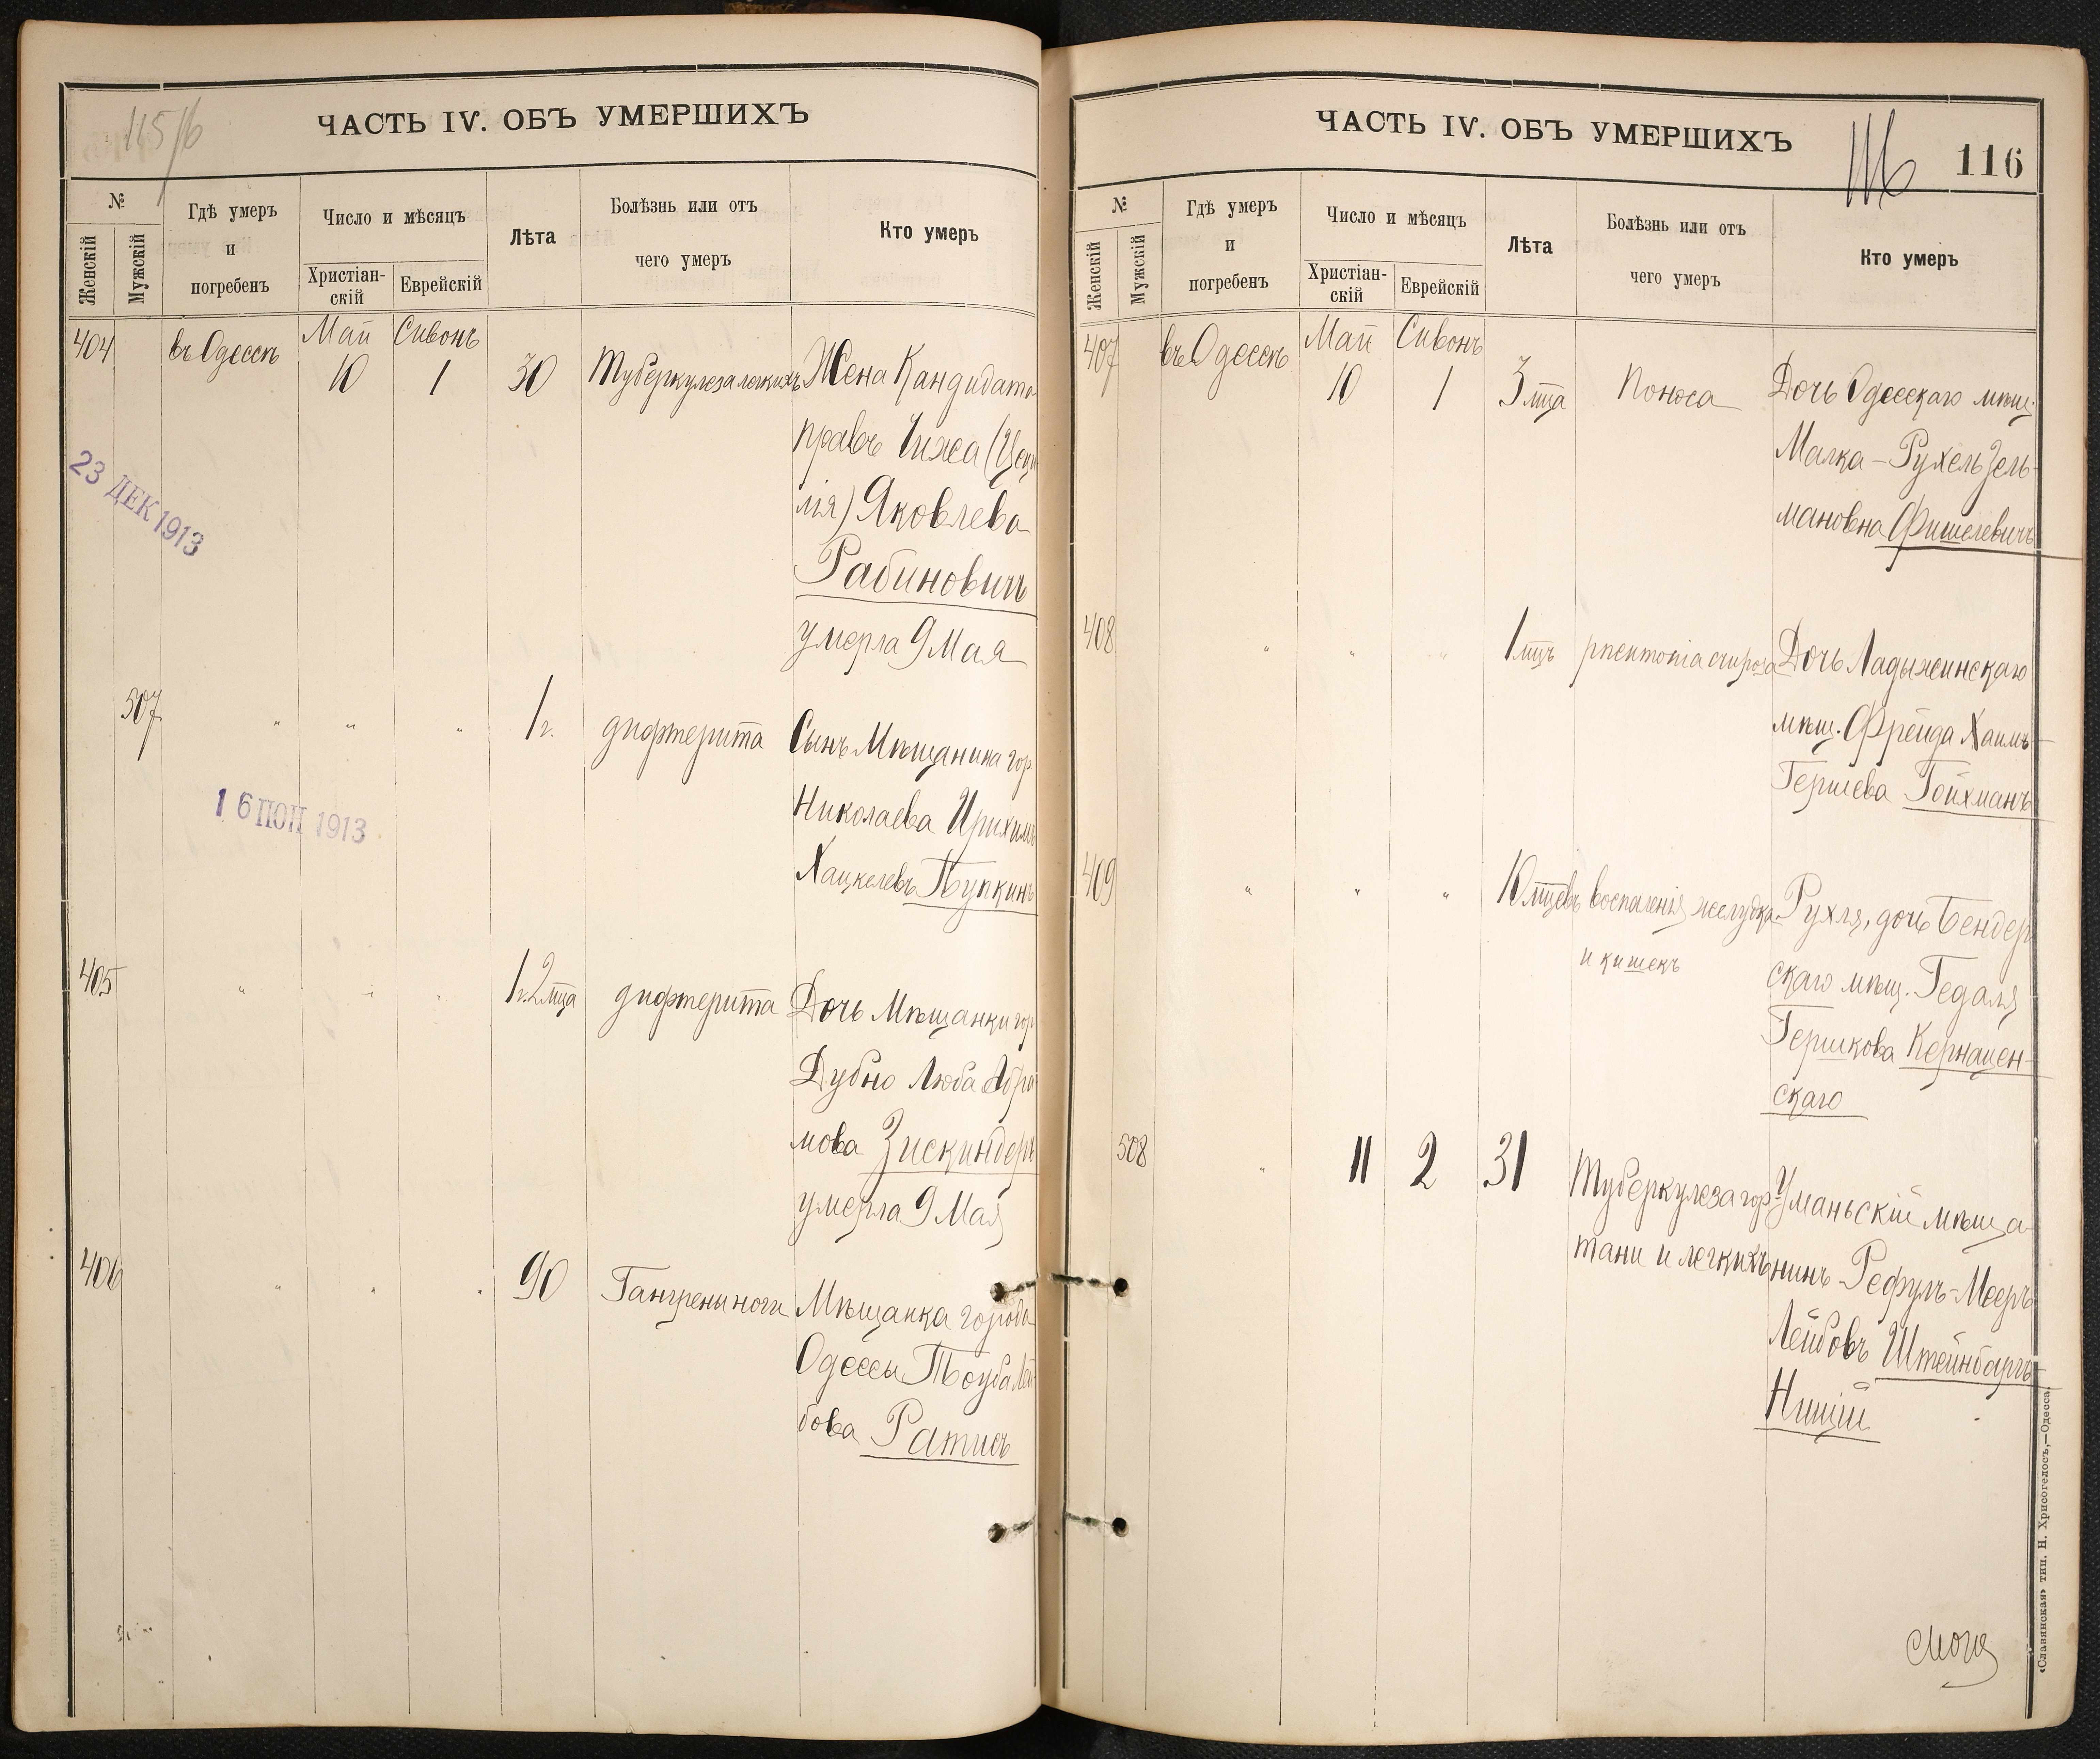 115/6
ЧАСТЬ IV. ОБЪ УМЕРШИХЪ
№
Женскій
Мужскій
Гдѣ умеръ
и
погребенъ
Число и мѣсяцъ
Христіан-
скій
Еврейскій
Лѣта
Болѣзнь или отъ
чего умеръ
Кто умеръ
404 въ Одессѣ Май Сивонъ
10 1 30 Туберкулеза легкихъ Жена Кандидата
правъ Чижа (Цеци
лія) Яковлева
Рабиновичъ
умерла 9 Мая
23 ДЕК 1913
507 " " " 1 г. дифтерита Сынъ Мѣщанина гор
Николаева
Хацкелевъ Пупкинъ
16 ІЮЛ 1913
405 " " " 1 г. 2 мца дифтерита Дочь Мѣщанки гор
Дубно Люба Абра
мова Зискиндеръ
умерла 9 Мая
406 " " " 90 Гангрены ноги Мѣщанка города
Одессы Тоуба Лей
бова Ратисъ
ЧАСТЬ IV. ОБЪ УМЕРШИХЪ
116
116
№
Женскій
Мужскій
Гдѣ умеръ
и
погребенъ
Число и мѣсяцъ
Христіан-
скій
Еврейскій
Лѣта
Болѣзнь или отъ
чего умеръ
Кто умеръ
407 въ Одессѣ Май Сивонъ
10 1 3 мца Поноса Дочь Одесскаго мѣщ.
Малка-Рухель Зель-
мановна Фишелевичъ
408 " " " 1 мцъ Дочь Ладыжинскаго
мѣщ. Фрейда Хаимъ-
Гершева Гойхманъ
409 " " " 10 мцевъ воспаленія желудка Рухля, дочь Бендер
и кишекъ
скаго мѣщ. Гедаля
Гершкова Кернацен-
скаго
508 " 11 2 31 Туберкулеза гор- Уманьскій мѣща-
тани и легкихъ нинъ Рефулъ-Мееръ
Лейбовъ Штейнбаргъ
Нищій
«Славянская» тип. Н. Хрисогелосъ,—Одесса.